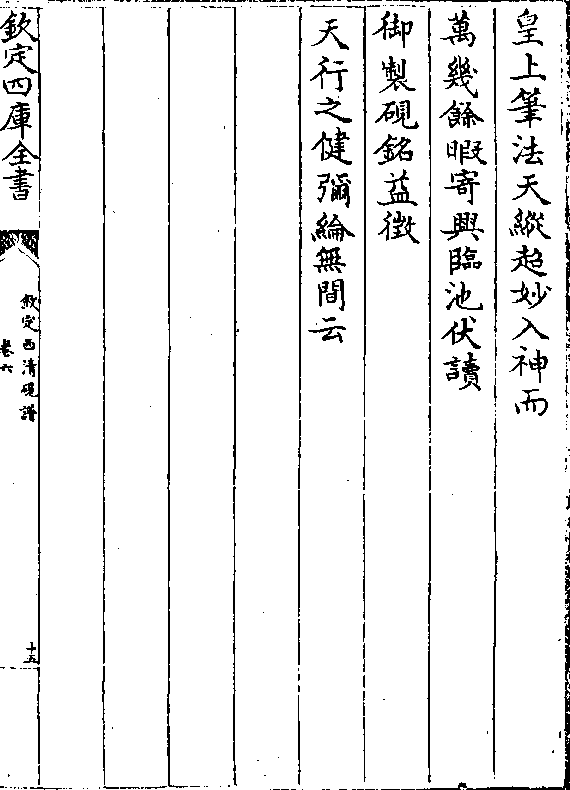 皇上筆法天縱超妙入神而
萬幾餘暇寄興臨池伏讀
御製硯銘益徴
天行之健彌綸無間云
欽定四庫全書
欽定西清硯譜
卷六
十五